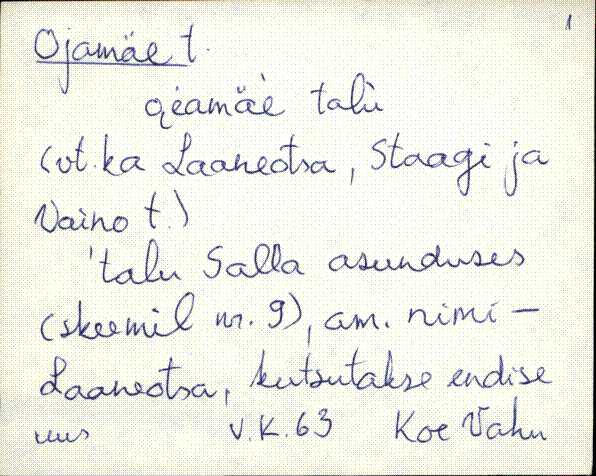 1
Ojamäe t.
oi̭amäè talù
(vt. ka Laaneotsa, Staagi ja
Vaino t.)
'talu Salla asunduses
(skeemil nr. 9), am. nimi –
Laaneotsa, kutsutakse endise
V.K. 63 Koe Vahu